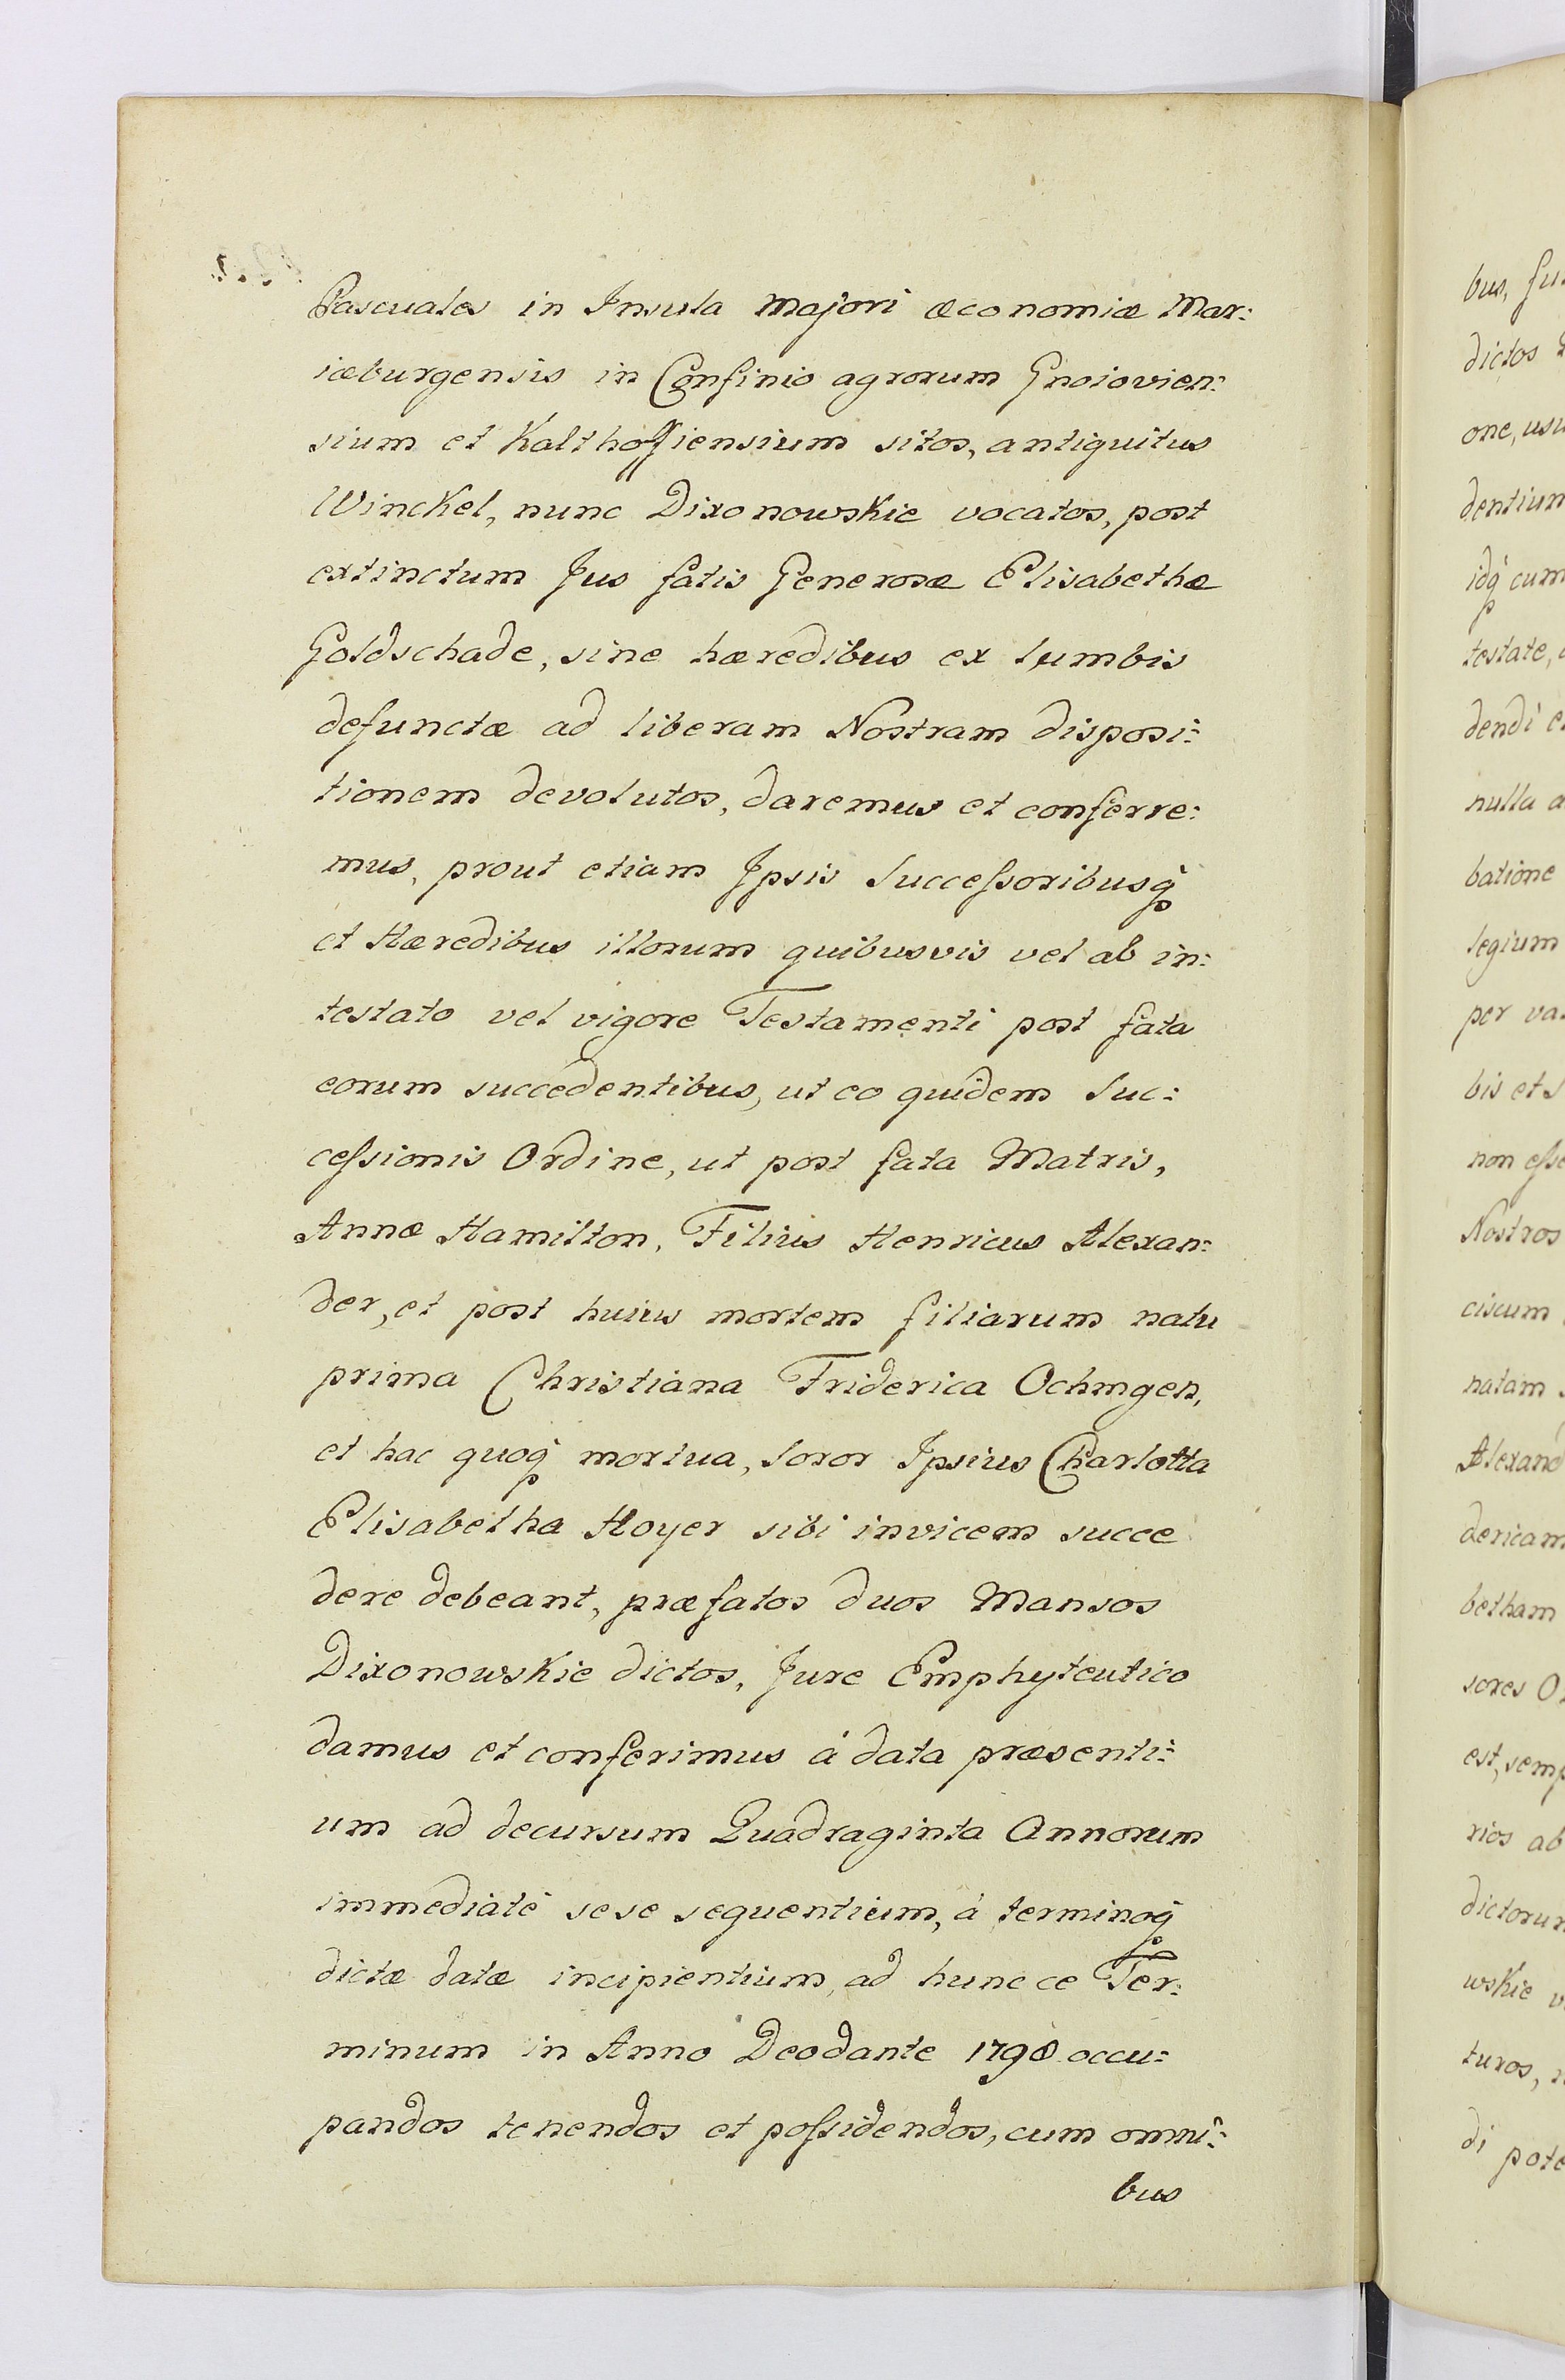 Pascuales in Insula Majori œconomiæ Mar:
iæburgensis in Confinio agrorum Gnoiovien:
sium et Kalthoffiensium sitos, antiquitus
Winckel, nunc Dixonowskie vocatos, post
extinctum Jus fatis Generosæ Elisabethæ
Goldschade, sine hæredibus ex lumbis
defunctæ ad liberam Nostram disposi:
tionem devolutos, daremus et conferre:
mus, prout etiam Ipsis Successoribusq;
et Hæredibus illorum quibusvis vel ab in:
testato vel vigore Testamenti post fata
eorum succedentibus, ut eo quidem Suc:
cessionis Ordine, ut post fata Matris,
Annæ Hamilton, Filius Henricus Alexan:
der, et post huius mortem filiarum natu
prima Christiana Friderica Ochmgen,
et hac quoq; mortua, Soror Ipsius Charlotta
Elisabetha Hoyer sibi invicem succe
dere debeant, præfatos duos Mansos
Dixonowskie dictos, Jure Emphyteutico
damus et conferimus à data præsenti:
um ad decursum Quadraginta Annorum
immediatè sese sequentium, à terminoq;
dictæ datæ incipientium, ad huncce Ter:
minum in Anno Deodante 1798 occu:
pandos tenendos et possidendos, cum omni:
bus
bus,
dictos
one, usu
dentium
idq; cum
testate,
dendi
nulla
batione
legium
per
bis et
non esse
Nostros
ciscum
natam
Alexand
dericam
betham
sores
est, semp
rios ab
dictorum
wskie
turos,
di pote